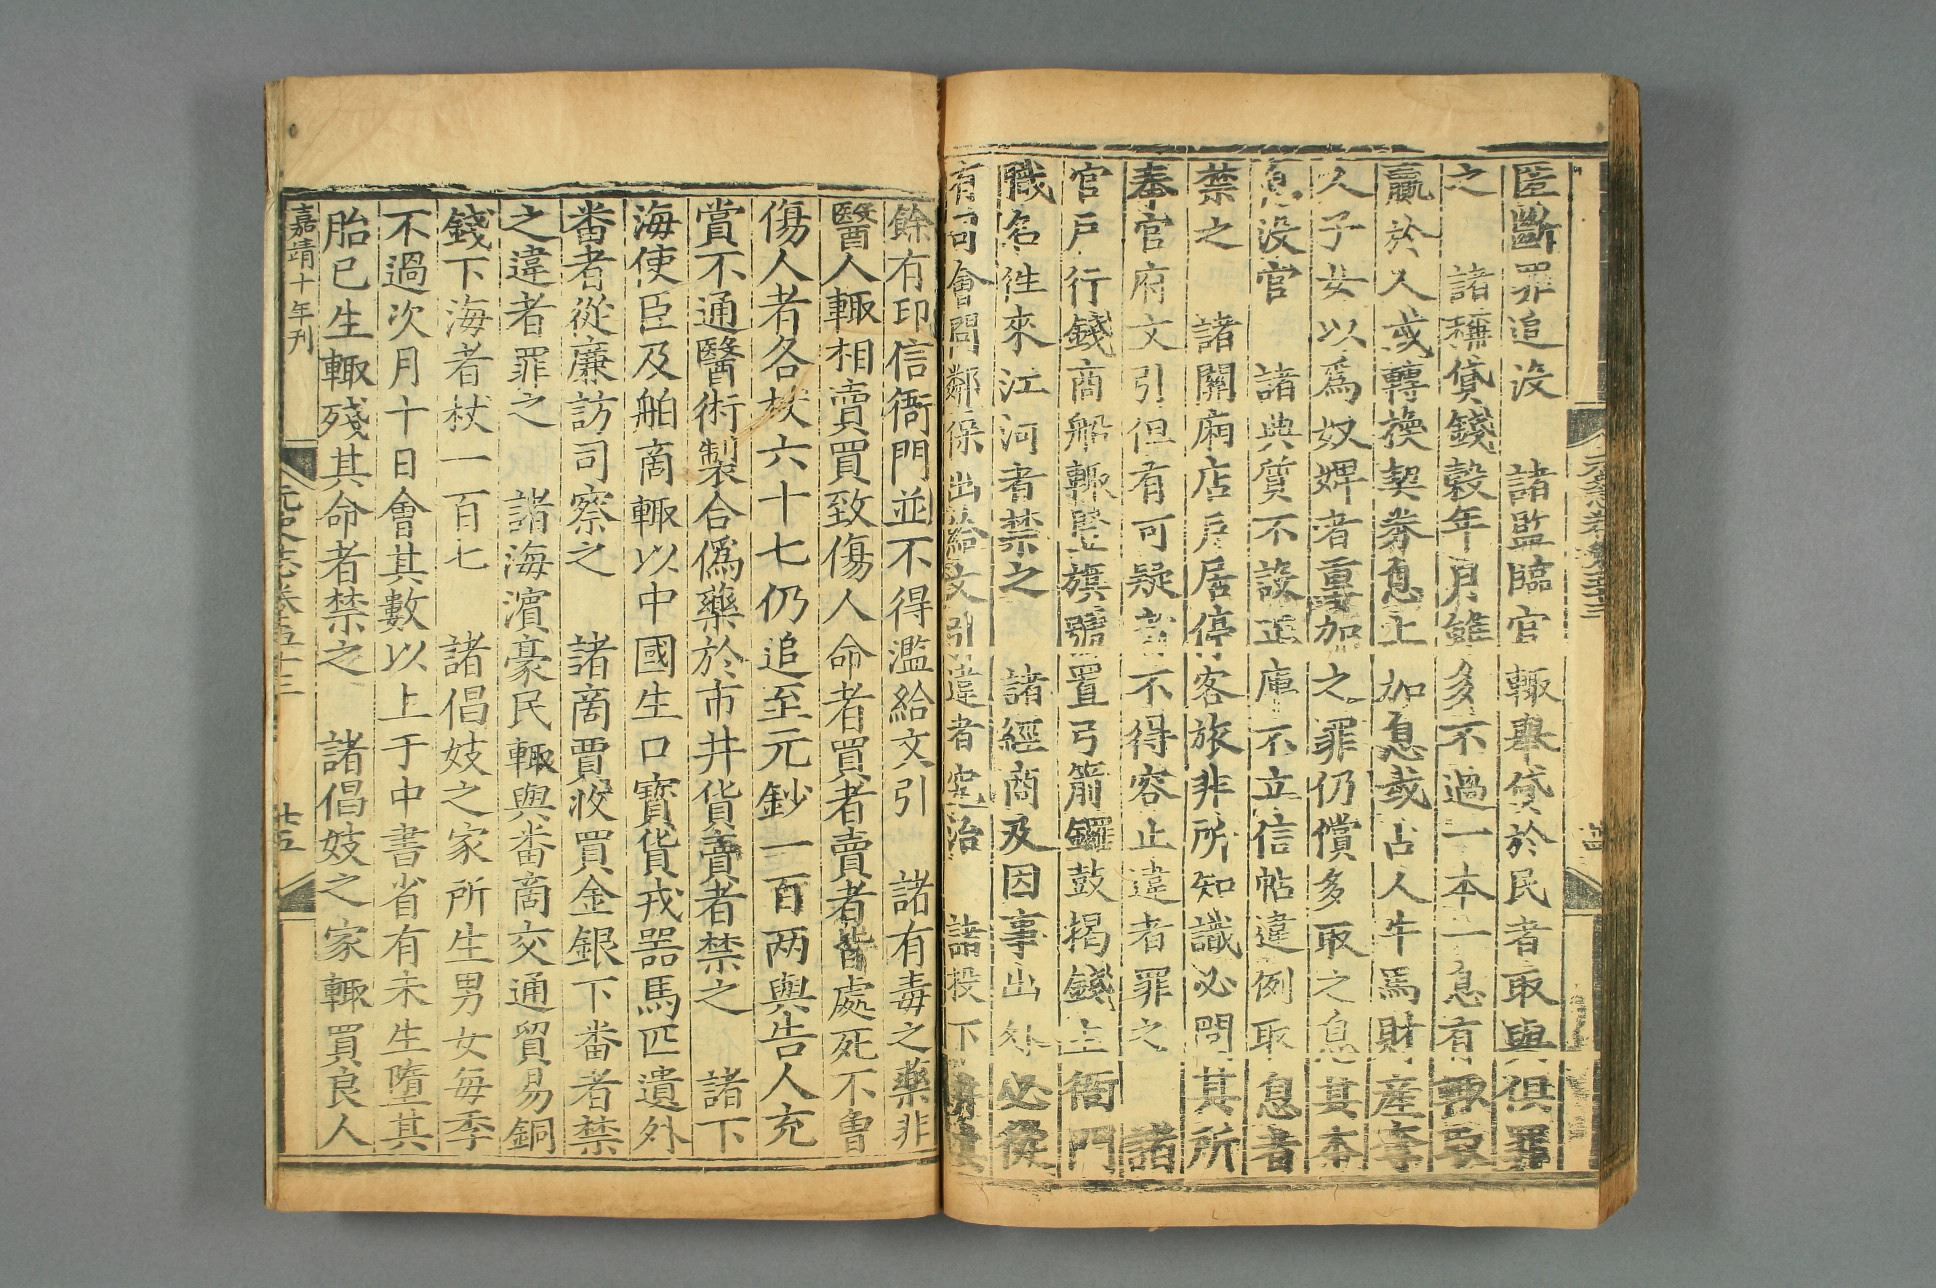 匿斷罪追没　諸監臨官輙舉貸於民者取與俱罪
之　諸稱貸錢穀年月雖多不過一本一息有輙取
贏於人或轉換契券息上加息或占人牛馬財產奪
人子女以爲奴婢者重加之罪仍償多取之息其本
息没官　諸典質不設正庫不立信帖違例取息者
禁之　諸關廂店戶居停客旅非所知識必問其所
奉官府文引但有可疑者不得容止違者罪之　諸
官戶行錢商船輙竪旗號置弓箭鑼鼓揭錢主衙門
職名徃來江河者禁之　諸經商及因事出外必從
有司會問鄰保出給文引違者究治　諸投下
餘有印信衙門並不得濫給文引　諸有毒之藥非
醫人輙相賣買致傷人命者買者賣者皆處死不曾
傷人者各杖六十七仍追至元鈔一百两與告人充
賞不通醫術製合僞藥於市井貨賣者禁之　諸下
海使臣及舶商輙以中國生口寶貨戎噐馬匹遺外
番者從廉訪司察之　諸商賈收買金銀下番者禁
之違者罪之　諸海濵豪民輙與番商交通貿易銅
錢下海者杖一百七　諸倡妓之家所生男女每季
不過次月十日會其數以上于中書省有未生墮其
胎已生輙殘其命者禁之　諸倡妓之家輙買良人
嘉靖十年刊
元史志卷五十三
廿五